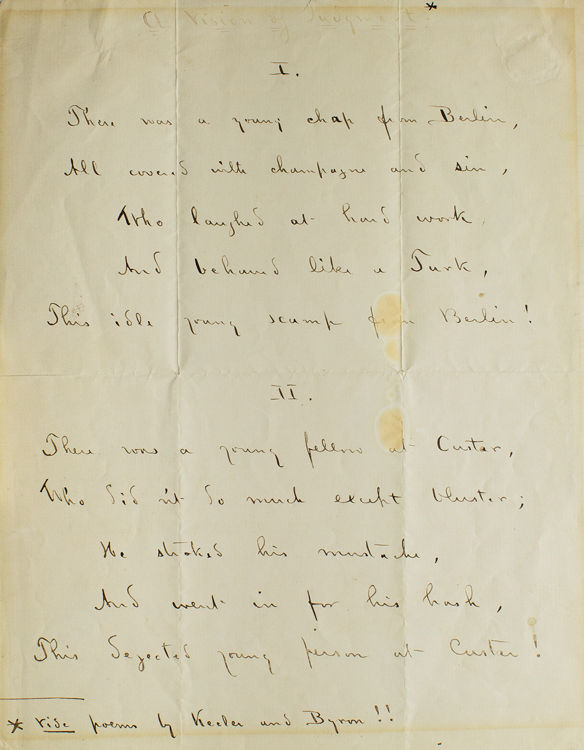 A Vision of Judgment. *
I.
There was a young chap from Berlin,
All covered with champagne and sin,
Who laughed at hard work
And behaved like a Turk,
This idle young scamp from Berlin!
II.
There was a young fellow at Custer,
Who did n't do much except bluster;
He stroked his mustache,
And went in for his hash,
This dejected young person at Custer!
* vide poems by Keeler and Byron!!